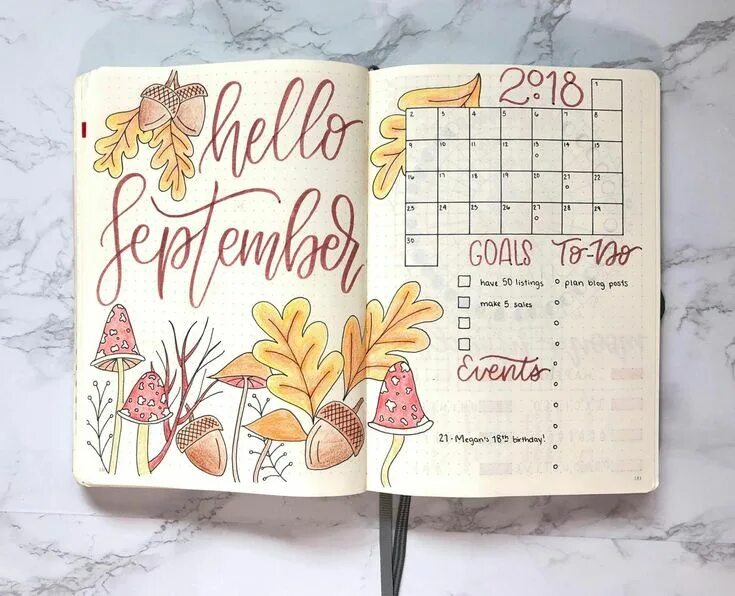 hello
September
2018
1
2 3 4 5 6 7 8
9 10 11 12 13 14 15
16 17 18 19 20 21 22
23 24 25 26 27 28 29
30
GOALS
have 50 listings
make 5 sales
To-Do
plan blog posts
Events
21 - Megan's 18th birthday!